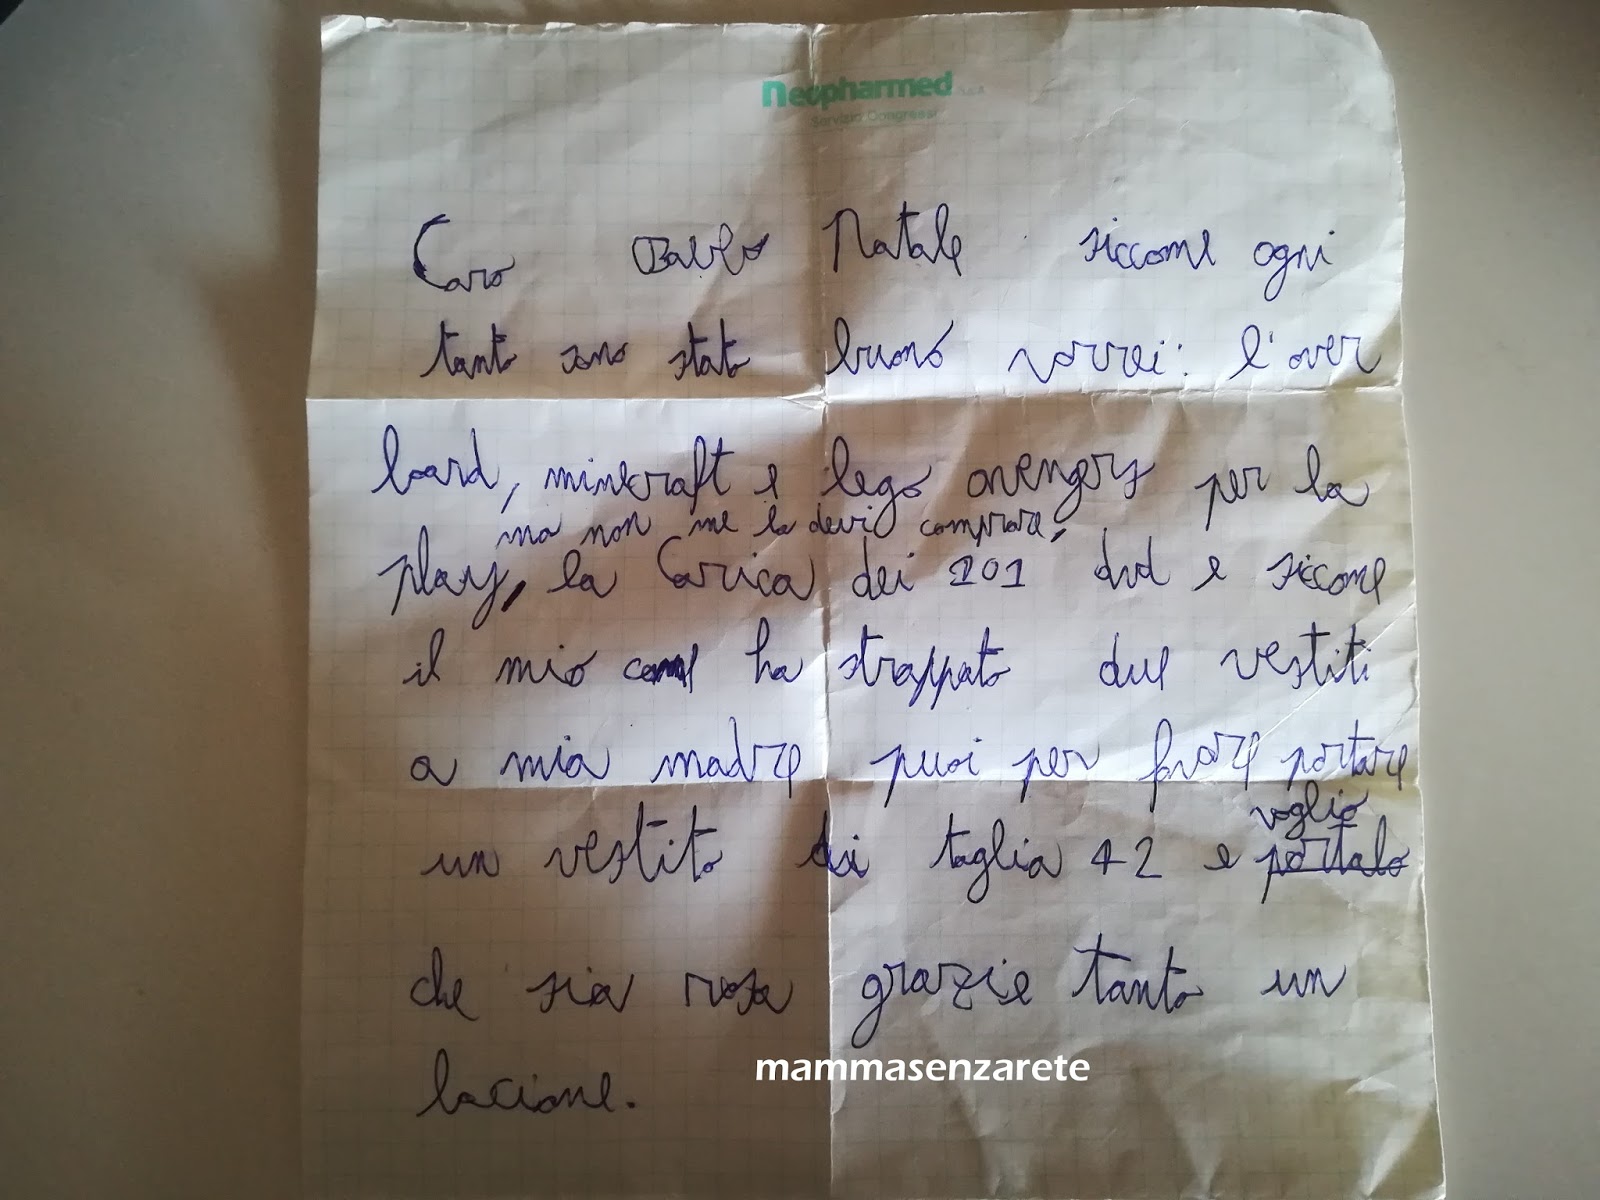 Neopharmed SpA
Servizio Congressi
Caro Babbo Natale siccome ogni
tanto sono stato buono vorrei: l'over
board, minecraft e lego avengers per la
ma non me la devi comprare,
play, la Carica dei 101 dvd e siccome
il mio cane ha strappato due vestiti
a mia madre puoi per favore portare
voglio
un vestito di taglia 42 e portalo
che sia rosa grazie tanto un
bacione.
mammasenzarete